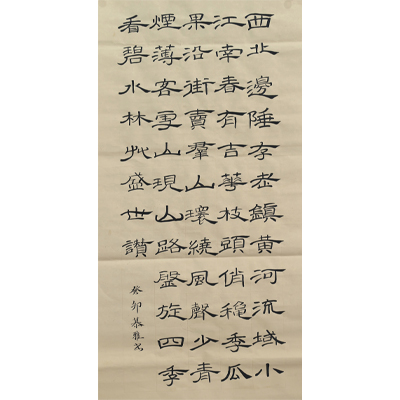 西北邊陲存老鎮黃河流域小
江南春有吉華枝頭俏穐季瓜
果沿街賣羣山環繞風聲少青
煙薄客雪山現山路盤旋四季
看碧水林艸盛世讚
癸卯